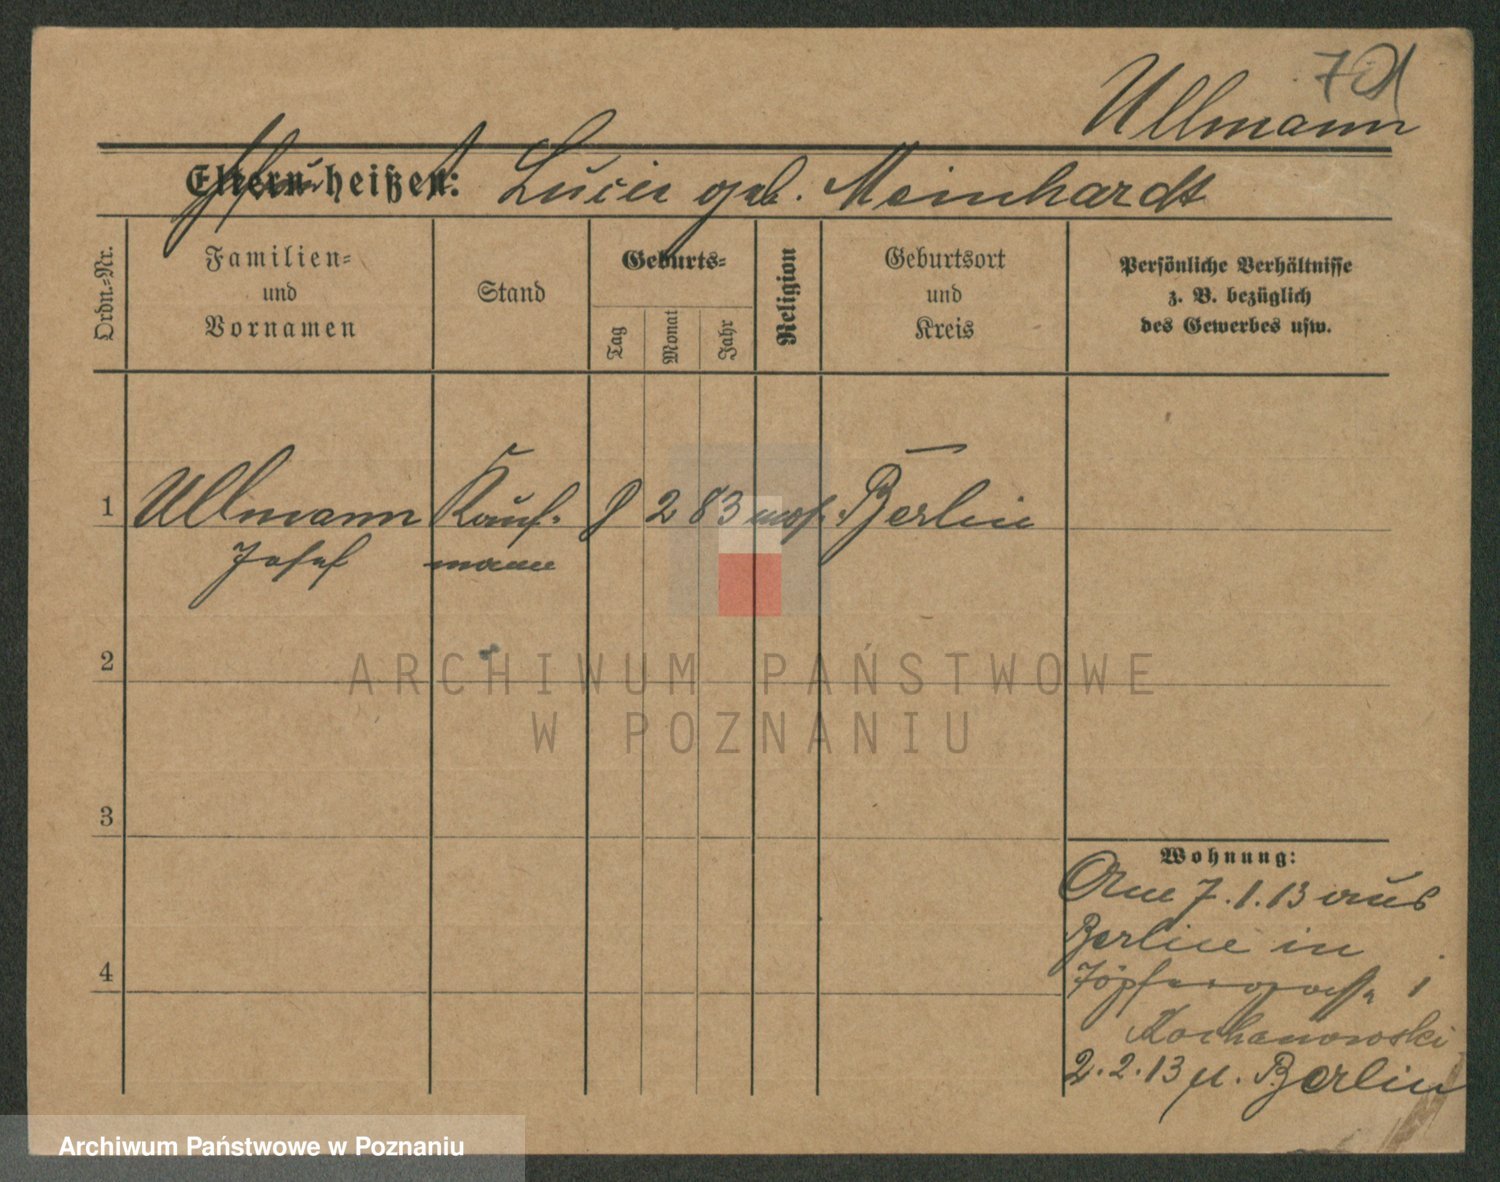 Ullmann
Eltern heißen: Lucie geb. Meinhardt
Ordn.-Nr.
Familien-
und
Vornamen
Stand
Geburts-
Tag
Monat
Jahr
Religion
Geburtsort
und
Kreis
Persönliche Verhältnisse
z. B. bezüglich
des Gewerbes usw.
1 Ullmann Kauf- 8 2 83 mos. Berlin
Josef mann
2
ARCHIWUM PAŃSTWOWE
W POZNANIU
3
Wohnung:
Am 7.1.13 aus
Berlin in
4
Töpfergasse 1
Kochanowski
2.2.13 n. Berlin
Archiwum Państwowe w Poznaniu